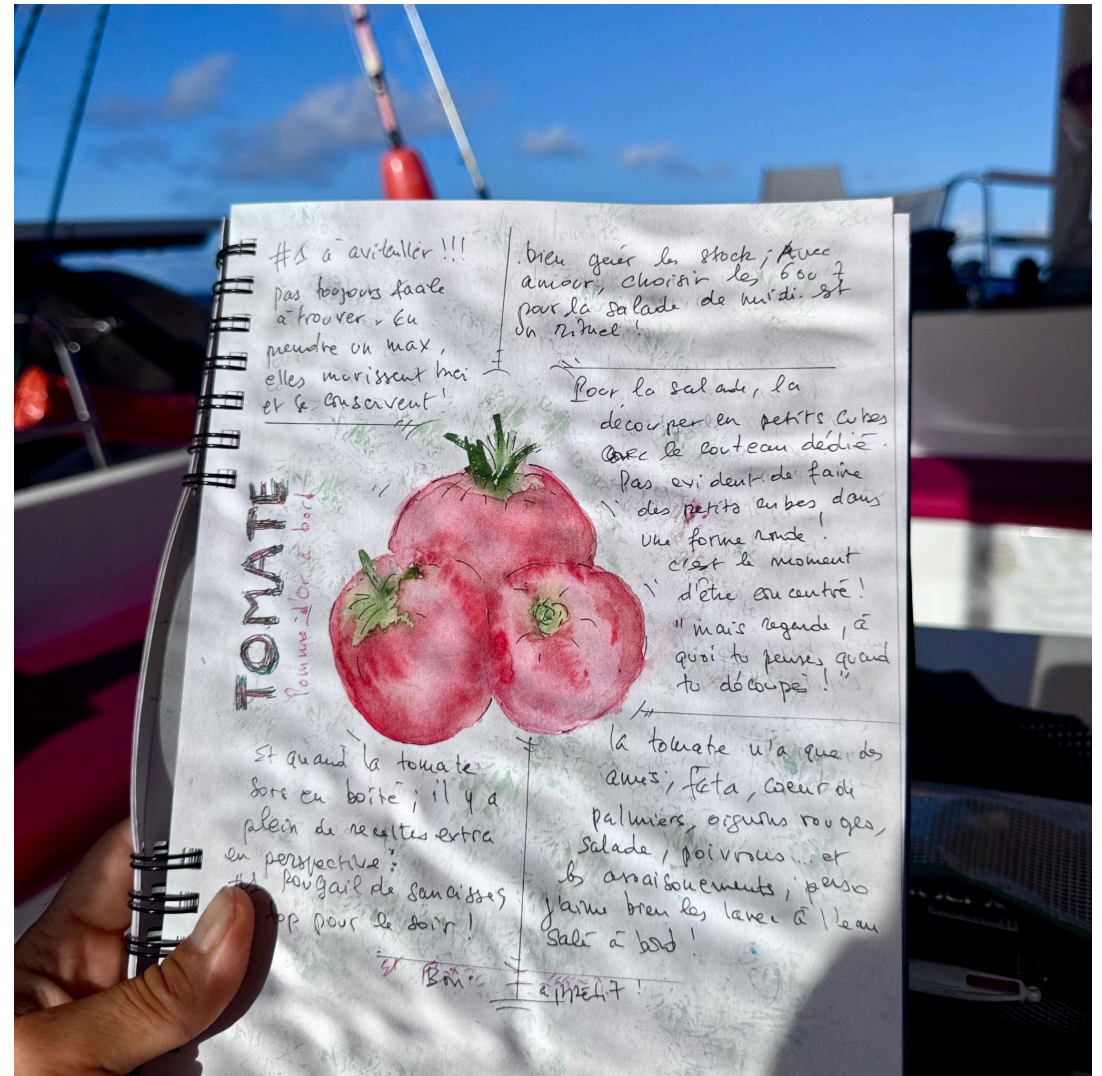 #1 à avitailler !!!
pas toujours facile
à trouver. En
prendre un max,
elles murissent
et se conservent !
bien gérer les stock ; Avec
amour, choisir les 6 ou 7
pour la salade de midi est
un rituel !
Pour la salade, la
découper en petits cubes
avec le couteau dédié.
Pas evident de faire
des petits cubes dans
une forme ronde !
c'est le moment
d'être concentré !
"mais regarde, à
quoi tu penses quand
tu découpe !"
TOMATE
Pomme-d'or à bord
Et quand la tomate
sors en boîte ; il y a
plein de recettes extra
en perspective :
#1 Rougail de saucisses
top pour le soir !
la tomate n'a que des
amis ; feta, coeur de
palmiers, oignons rouges,
salade, poivrons... et
les assaisonements ; perso
j'aime bien les laver à l'eau
salé à bord !
Bon appétit !